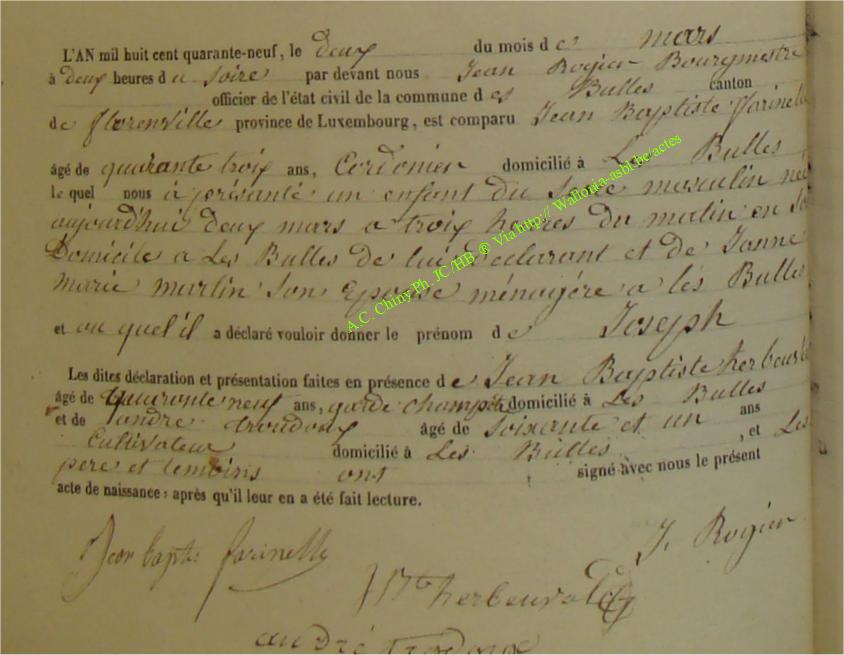 L'AN mil huit cent quarante-neuf, le deux du mois d e mars
à deux heures d u soire par devant nous Jean Rogier Bourgmestre
officier de l'état civil de la commune d es Bulles canton
de florenville province de Luxembourg, est comparu Jean Baptiste farinelle
âgé de quarante trois ans, Cordonier domicilié à Les Bulles
le quel nous à présanté un enfant du sexe masculin neé
aujourd'hui deux mars a troix heures du matin en son
Domicile a Les Bulles de lui Déclarant et de Janne
marie martin son Epouse ménagére a lés Bulles
et au quel'il a déclaré vouloir donner le prénom d e Joseph
Les dites déclaration et présentation faites en présence d e Jean Baptiste herbeuval
âgé de quaronte neuf ans, garde champetre domicilié à Les Bulles
et de andre trodoux âgé de soixante et un ans
Cultivateur domicilié à Les Bulles , et Les
pere et temoins ont signé avec nous le présent
acte de naissance, après qu'il leur en a été fait lecture.
Jean bapt: farinelle
J. Rogier
J Bte herbeuval
andré trodoux
A.C. Chiny Ph. JC /HB ® Via http:// Wallonia-asbl.be/actes